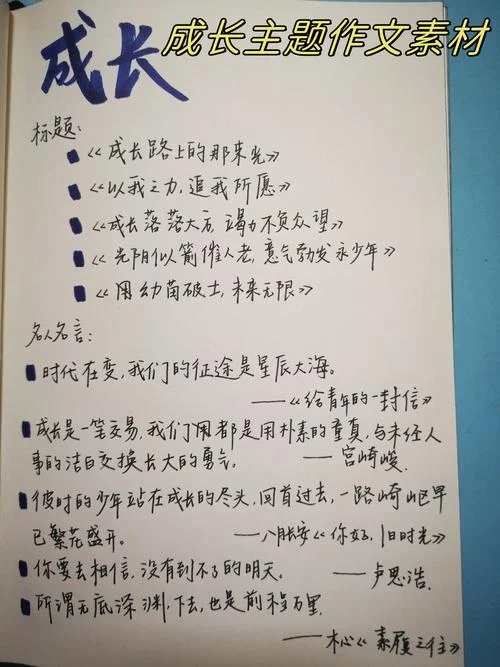 成长主题作文素材
成长
标题:
《成长路上的那束光》
《以我之力,追我所愿》
《成长落落大方,竭力不负众望》
《光阴似箭催人老,意气勃发永少年》
《用幼苗破土,未来无限》
名人名言:
时代在变,我们的征途是星辰大海。
——《给青年的一封信》
成长是一笔交易,我们用都是用朴素的童真,与未经人
事的洁白交换长大的勇气。——宫崎峻.
彼时的少年站在成长的尽头,回首过去,一路崎岖早
已繁花盛开。——八月长安《你好,旧时光》
你要去相信,没有到不了的明天。——卢思浩.
所谓无底深渊,下去,也是前程万里.
——木心《素履之往》